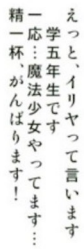 えっと、イリヤって言います
学五年生です
一応…魔法少女やってます…
精一杯、がんばります！